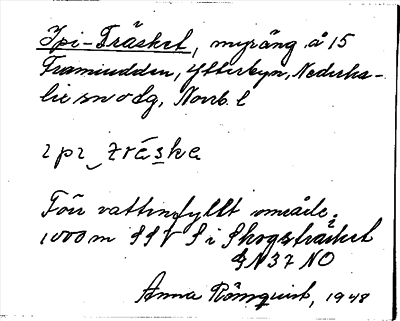 Ypi-Träsket, myräng å 15
Framiudden, Ytterbyn, Nederka-
lix sn o dg, Norrb. l
ɪpɪ‿træska
Förr vattenfyllt område.
1000 m SSV S i Skogsträsket
GN 37 NO
Anna Römquist, 1948